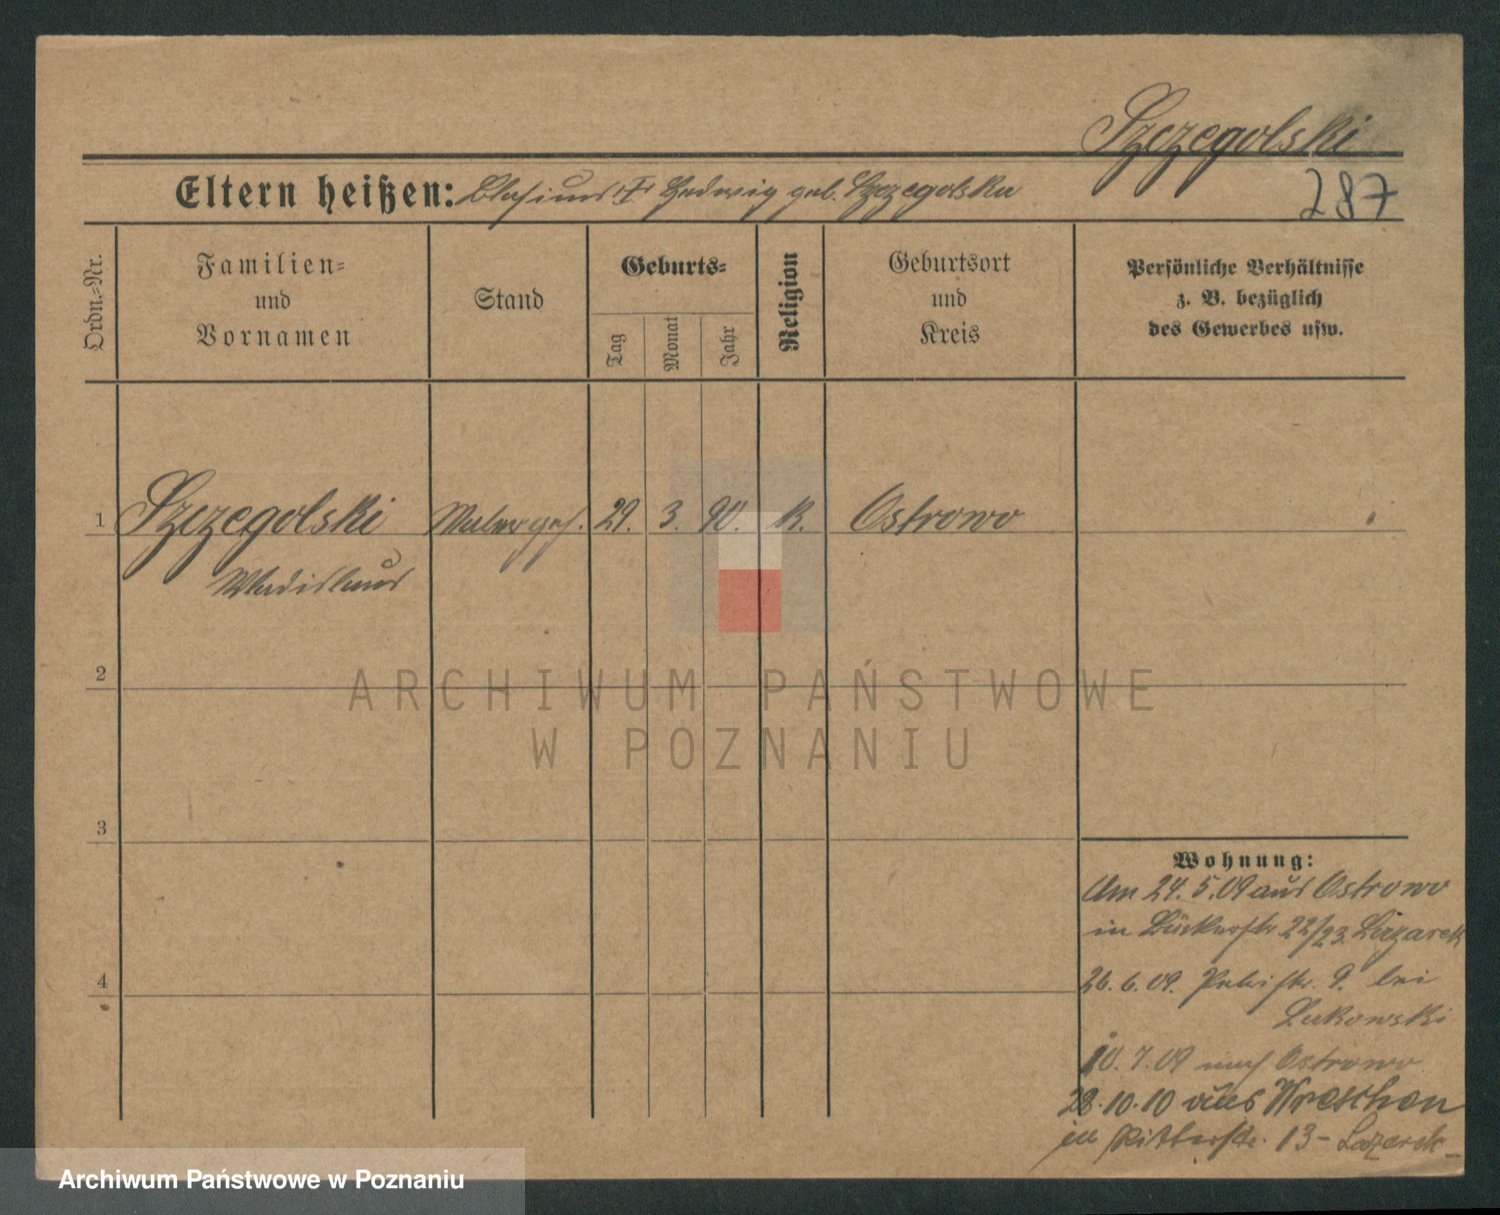 Szczegolski
Eltern heißen: Blasius u. Hedwig geb. Szczegolska
287
Ordn.-Nr.
Familien-
und
Vornamen
Stand
Geburts-
Tag
Monat
Jahr
Religion
Geburtsort
und
Kreis
Persönliche Verhältnisse
z. B. bezüglich
des Gewerbes usw.
1 Szczegolski Malergeh. 29. 3. 90. K. Ostrowo
Wladislaus
2
3
4
Wohnung:
Am 24.5.09 aus Ostrowo
in 22/23 Lazarek
26.6.09. 9. bei
Lukowski
10.7.09 nach Ostrowo
28.10.10 aus Wreschen
in Ritterstr. 13 - Lazarek
ARCHIWUM PAŃSTWOWE
W POZNANIU
Archiwum Państwowe w Poznaniu